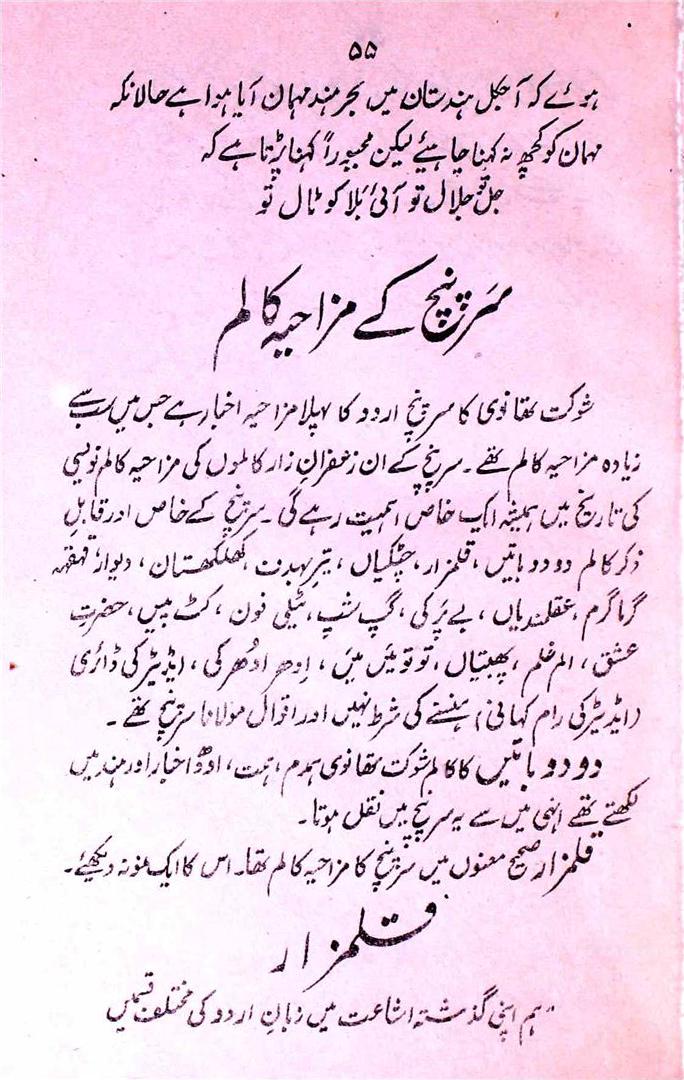 ۵۵
ہوئے کہ آجکل ہندستان میں بحر ہند مہمان آیا ہوا ہے حالانکہ
مہمان کو کچھ نہ کہنا چاہیئے لیکن مجبوراً کہنا پڑتا ہے کہ
جل تو جلال تو آئی بلا کو ٹال تو
سرپنچ کے مزاحیہ کالم
شوکت تھانوی کا سرپنچ اردو کا پہلا مزاحیہ اخبار ہے جس میں سب سے
زیادہ مزاحیہ کالم تھے۔ سرپنچ کے ان زعفران زار کالموں کی مزاحیہ کالم نویسی
کی تاریخ میں ہمیشہ ایک خاص اہمیت رہے گی۔ سرپنچ کے خاص اور قابلِ
ذکر کالم دو دو باتیں، قلمزار، چٹکیاں، تیر بہدف، کھلکھلستان، دیوارِ قہقہہ
گرما گرم، عقلمندیاں، بے پر کی، گپ شپ، ٹیلی فون، کٹ پیس، حضرتِ
عشق، الم غلم، پھبتیاں، تو تو میں میں، ادھر اُدھر کی، ایڈیٹر کی ڈائری
(ایڈیٹر کی رام کہانی) ہنسنے کی شرط نہیں اور اقوال مولانا سرپنچ تھے۔
دو دو باتیں کا کالم شوکت تھانوی ہمدم، ہمت، اودھ اخبار اور ہند میں
لکھتے تھے انہی میں سے یہ سرپنچ میں نقل ہوتا۔
قلمزار صحیح معنوں میں سرپنچ کا مزاحیہ کالم تھا۔ اس کا ایک نمونہ دیکھئے۔
قلمزار
ہم اپنی گذشتہ اشاعت میں زبانِ اردو کی مختلف قسمیں